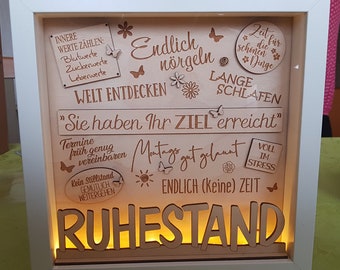 INNERE
WERTE ZÄHLEN:
Blutwerte
Zuckerwerte
Leberwerte
Endlich
nörgeln
Zeit für
die
schönen
Dinge
WELT ENTDECKEN
LANGE
SCHLAFEN
"Sie haben Ihr ZIEL erreicht"
Termine
früh genug
vereinbaren
Montags gut gelaunt
VOLL IM
STRESS
Kein Stillstand
GEMÜTLICH
WEITERGEHEN
ENDLICH (keine) ZEIT
RUHESTAND